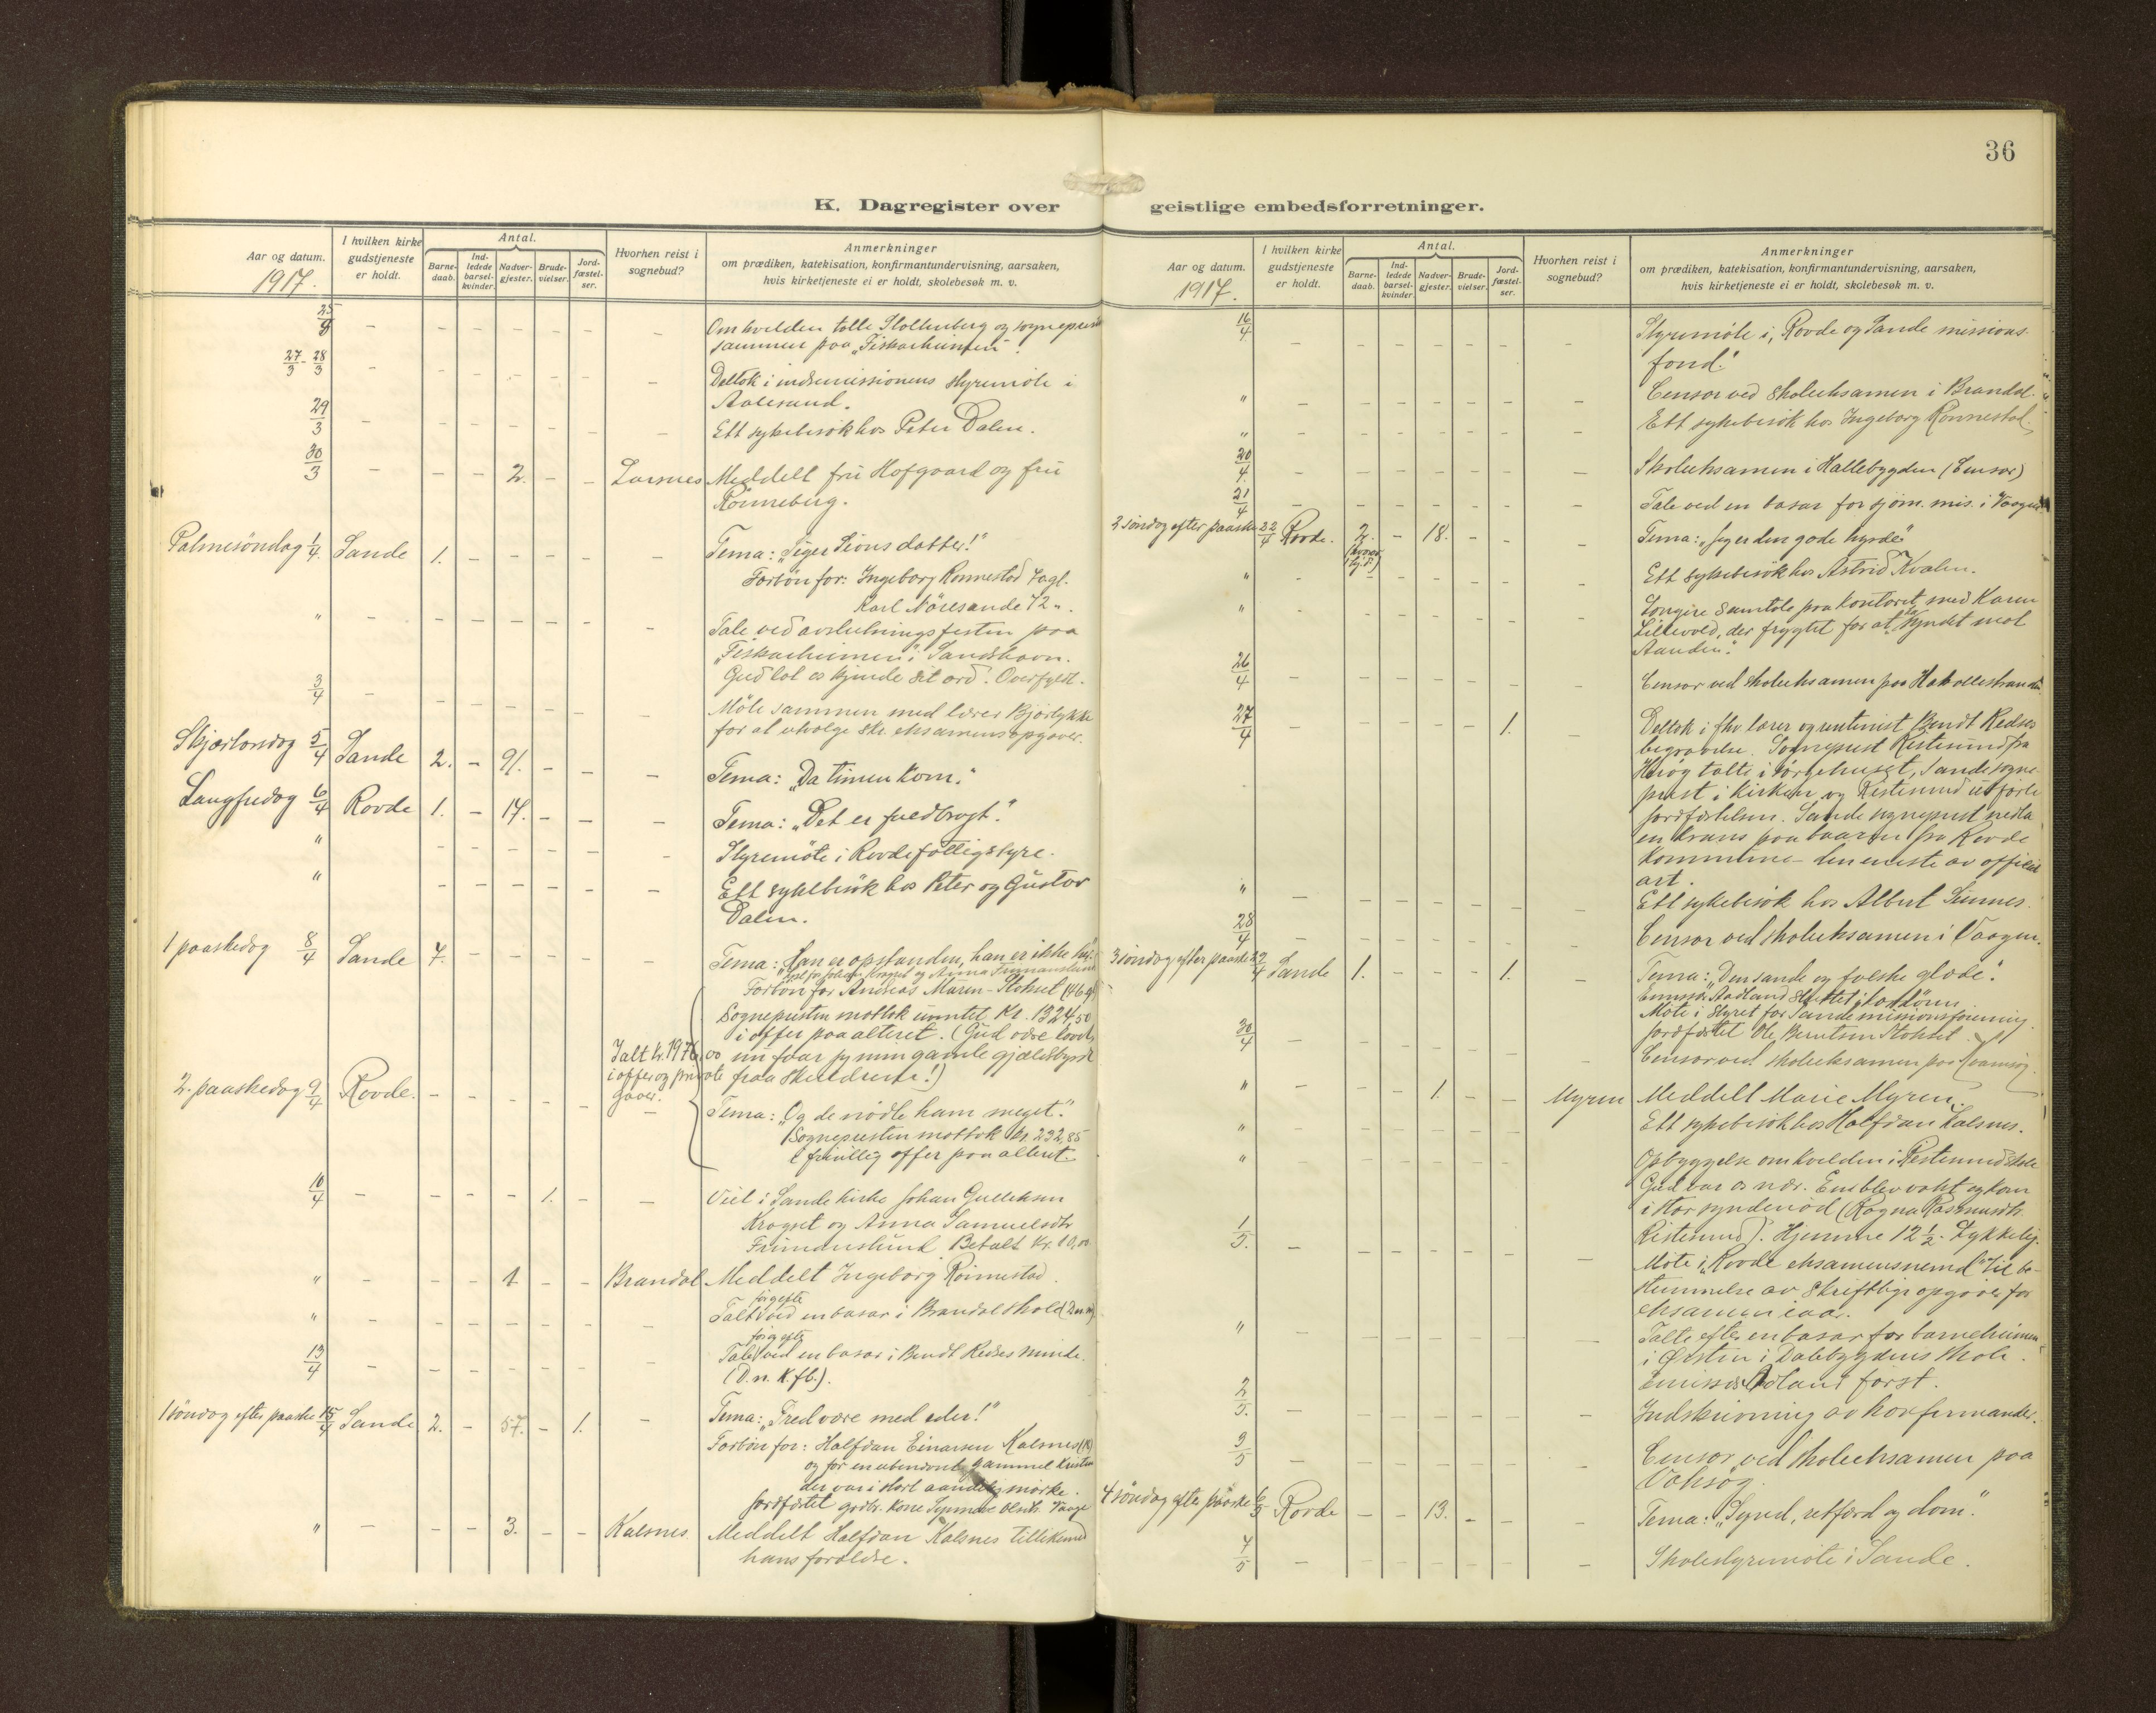 36
K. Dagregister over geistlige embedsforretninger.
Aar og datum.
1917.
I hvilken kirke gudstjeneste er holdt.
Antal.
Barne-daab.
Ind-ledede barsel-kvinder.
Nadver-gjester.
Brude-vielser.
Jord-fæstel-ser.
Hvorhen reist i sognebud?
Anmerkninger
om prædiken, katekisation, konfirmantundervisning, aarsaken,
hvis kirketjeneste ei er holdt, skolebesøk m. v.
Om kvelden talte Stoltenberg og sogneprest
sammen paa "Fiskarheimen".
27/3 - 28/3 Deltok i indremissionens styremöte i
Aalesund.
29/3 Ett sykebesök hos Peter Dalen.
30/3 2. Larsnes Meddelt fru Hofgaard og fru
Rönneberg.
Palmesöndag 1/4. Sande 1. Tema: "Siger Sions datter!"
Forbön for: Ingeborg Rönnestad
Karl Nöresande 72 ".
" Tale ved avslutningsfesten paa
"Fiskarheimen" i Sandshavn.
Gud lot os kjende sit ord. Overfyldt.
3/4 Möte sammen med lærer Bjørlykke
for at utvælge skr. eksamensopgaver.
Skjærtorsdag 5/4 Sande 2. 91. Tema: "Da timen kom."
Langfredag 6/4 Rovde 1. 17. Tema: "Det er fuldbragt."
" Styremöte i Rovde fattigstyre.
" Ett sykebesök hos Peter og Gustav
Dalen.
1 paaskedag 8/4 Sande 7. Tema: "Han er opstanden, han er ikke her."
Forbön for Andreas Maren-Stokset
Sognepresten mottok uventet kr. 1324,50
i offer paa alteret. (Gud være lovet,
nu faar jeg min gamle gjældsbyrde
fraa skuldrene!)
Ialt kr. 1976,00
i offer og private
gaver.
2. paaskedag 9/4 Rovde. Tema: "Og de nödte ham meget."
Sognepresten mottok kr. 232,85
i frivillig offer paa alteret.
10/4 1. Viet i Sande kirke Johan Gulleksen
Krogset og Anna Samuelsdtr
Betalt kr. 10,00
" 1 Brandal Meddelt Ingeborg Rönnestad.
" Talt för og efter ved en basar i Brandal skole
13/4 Tale för og efter ved en basar i Bendt Redses minde.
(D. n. K. fb.).
1 söndag efter paaske 15/4 Sande 2. 57. 1. Tema: "Fred være med eder!"
Forbön for: Halfdan Einarsen Kalsnes
og for en ubenævnt gammel kristen
der var i stort aandelig mörke.
" 3. Kalsnes. Meddelt Halfdan Kalsnes tillikemed
hans forældre.
Aar og datum.
1917.
I hvilken kirke gudstjeneste er holdt.
Antal.
Barne-daab.
Ind-ledede barsel-kvinder.
Nadver-gjester.
Brude-vielser.
Jord-fæstel-ser.
Hvorhen reist i sognebud?
Anmerkninger
om prædiken, katekisation, konfirmantundervisning, aarsaken,
hvis kirketjeneste ei er holdt, skolebesøk m. v.
16/4 Styremöte i "Rovde og Sande missions-
fond."
" Censor ved skoleeksamen i Brandal.
" Ett sykebesök hos Ingeborg Rönnestad.
20/4 Skoleeksamen i Hallebygden (Censor)
21/4 Tale ved en basar for sjöm. mis. i
2 söndag efter paaske 22/4 Rovde. 2. 18. Tema: "Jeg er den gode hyrde"
" Ett sykebesök hos Astrid Kvalen.
" Længere samtale paa kontoret med Karen
Lillevold, der frygtet for at ha syndet mot
Aanden.
26/4 Censor ved skoleeksamen paa Hakallestranden
27/4 1. Deltok i fhv. lærer Bendt Redses
begravelse. Sogneprest Ristesund fra
talte i sörgehuset, Sande sogne-
prest i kirken og Ristesund utförte
jordfæstelsen. Sande sogneprest nedla
en krans paa baaren fra Rovde
kommune - den eneste av officiel
art.
" Ett sykebesök hos Albert Sinnes.
28/4 Censor ved skoleeksamen i Vaagen.
3 söndag efter paaske 29/4 Sande 1. 1. Tema: "Den sande og falske glæde".
Möte i styret for Sande missionsforening.
Jordfæstet Ole Berntsen Stokset.
30/4 Censor ved skoleeksamen paa
" 1. Myren Meddelt Marie Myren.
" Ett sykebesök hos Halfdan Kalsnes.
" Opbyggelse om kvelden i Ristesund skole
Gud var os nær. En blev vakt og kom
i stor syndenöd (Ragna Rasmusdtr.
Ristesund). Hjemme 12 1/2. Lykkelig.
1/5. Möte i "Rovde eksamensnemd" til be-
stemmelse av skriftlige opgaver for
eksamen iaar.
" Talte efter en basar for barneheimen
i Örsten i Dalebygdens skole.
först.
2/5. Indskrivning av konfirmander.
3/5 Censor ved skoleeksamen paa
Voksög.
4 söndag efter paaske 6/5 Rovde 13. Tema: "Synd, retfærd og dom."
7/5 Skolestyremöte i Sande.